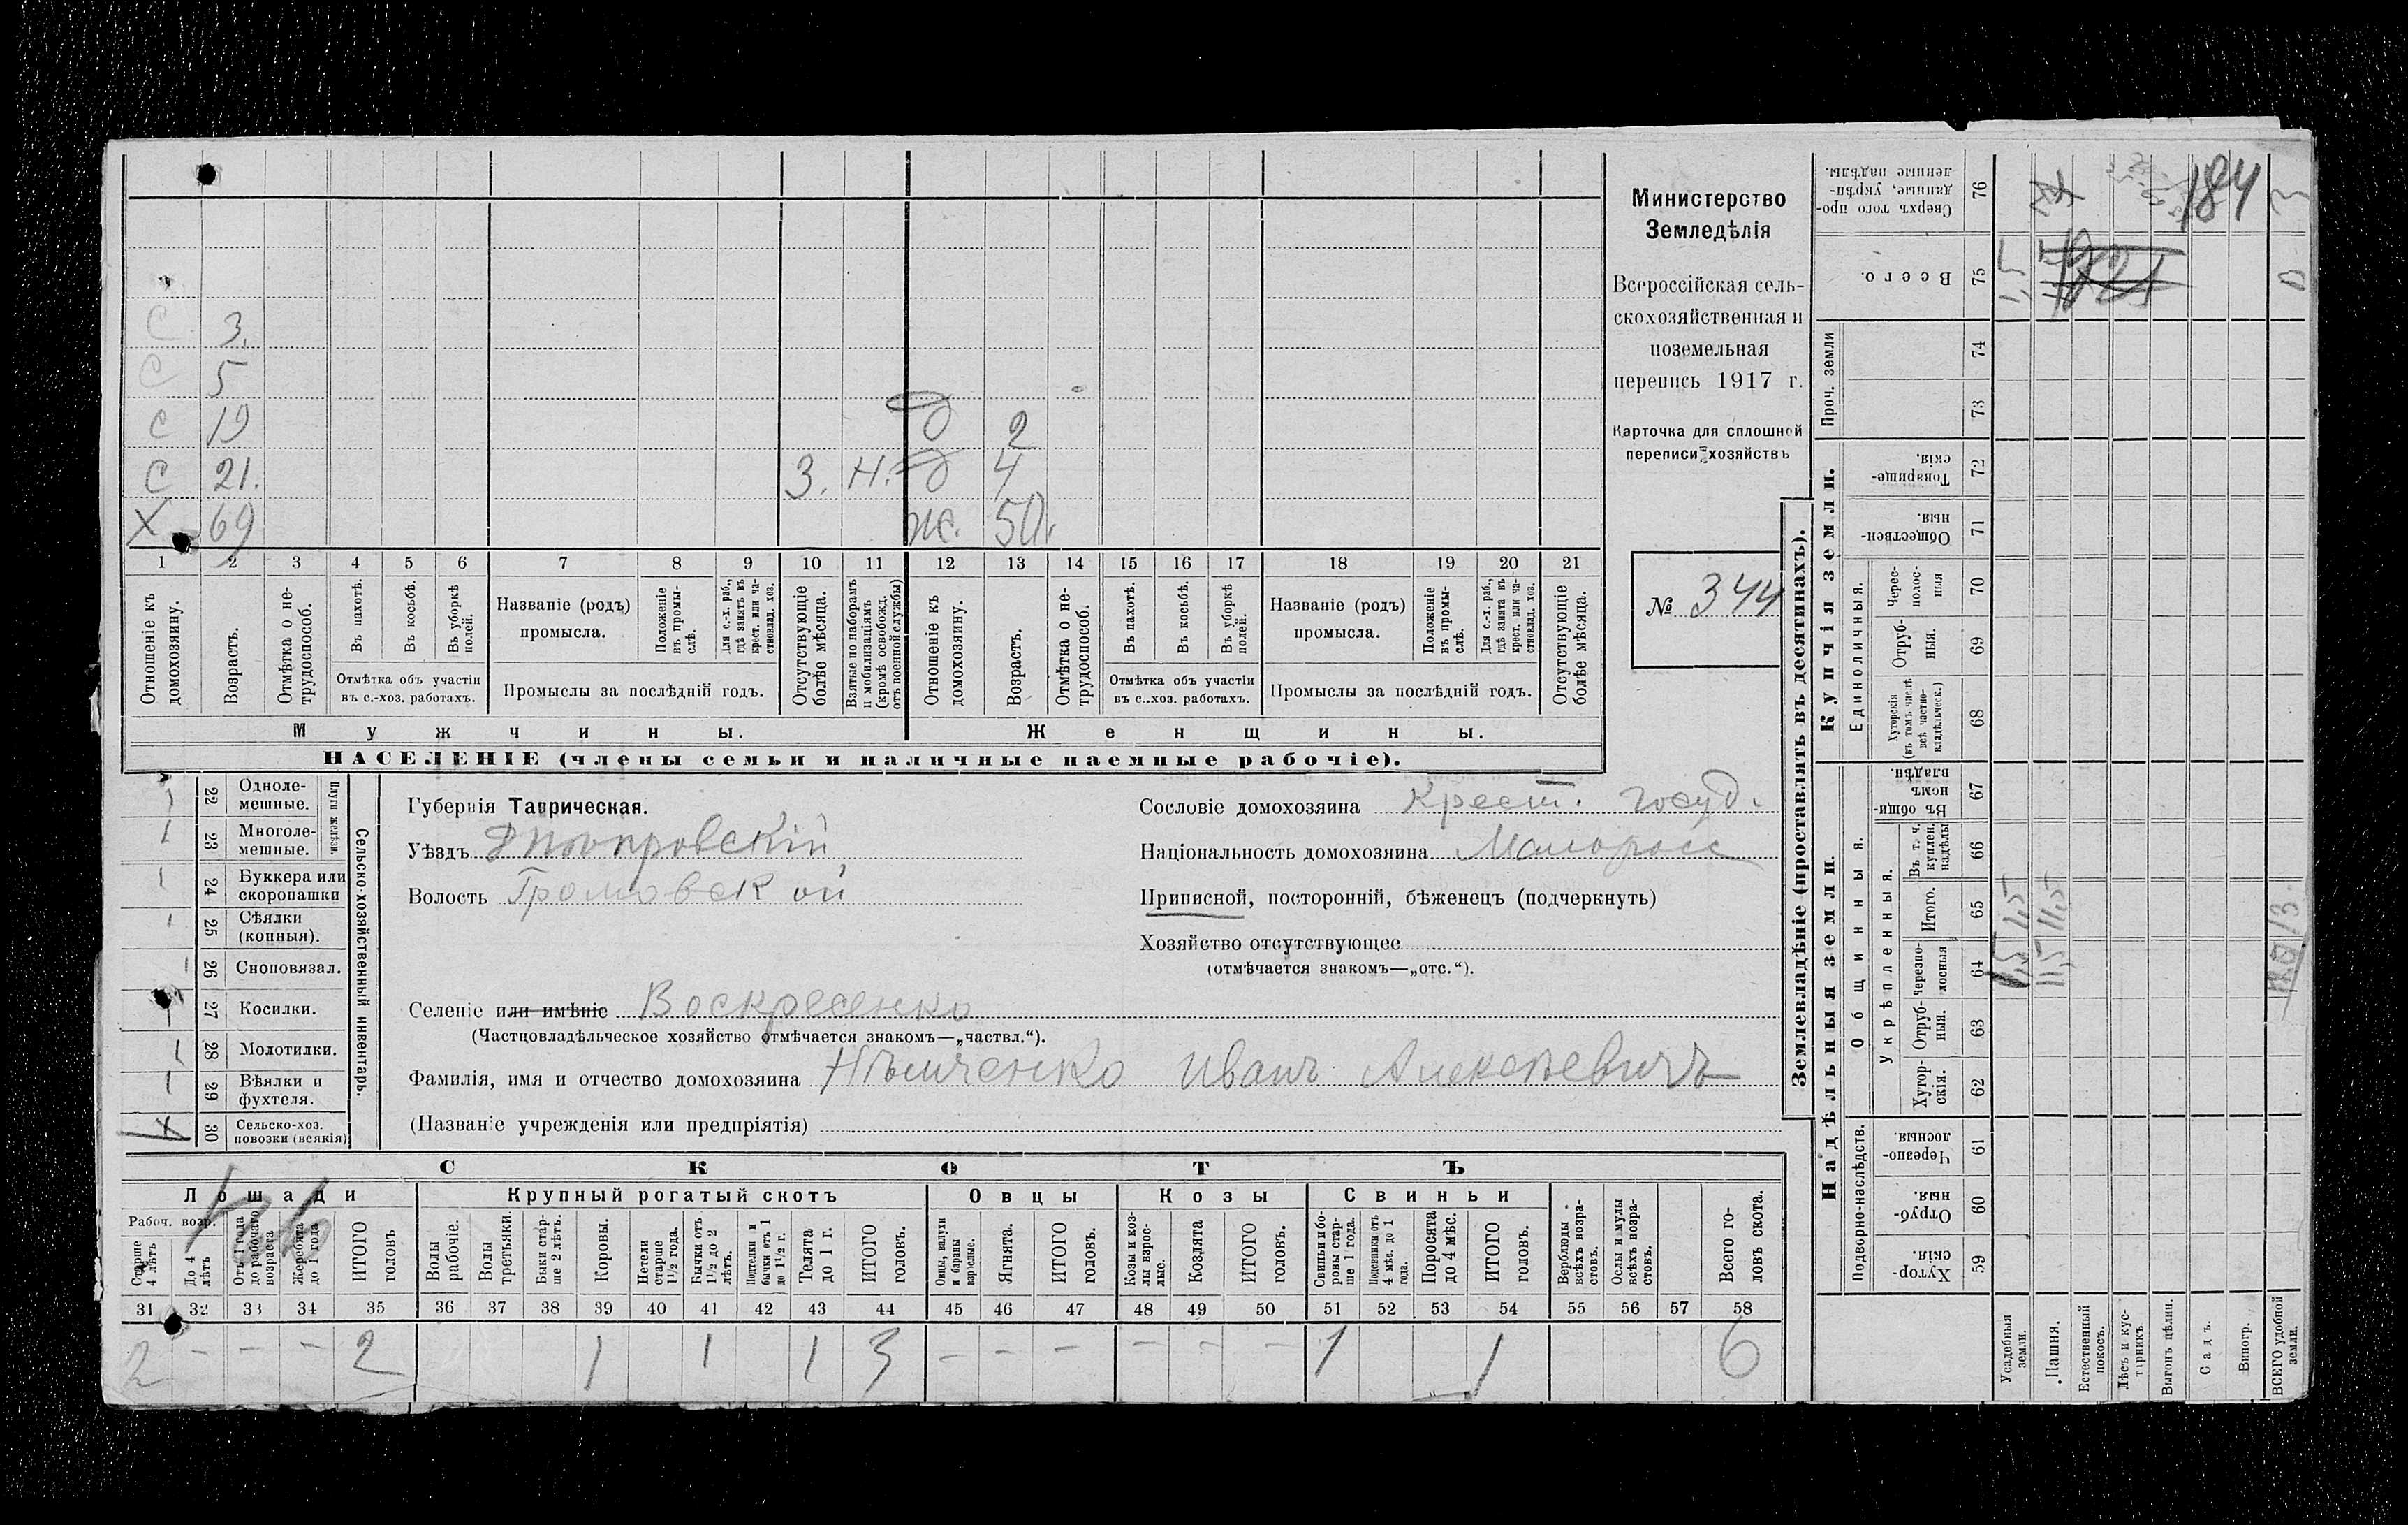 С 3.
С 5
С 19 д 2
С 21. 3. Н. д 4
Х 69 Ж. 50.
1 2 3 4 5 6 7 8 9 10 11 12 13 14 15 16 17 18 19 20 21
Отношеніе къ домохозяину.
Возрастъ.
Отмѣтка о не-трудоспособ.
Въ пахотѣ.
Въ косьбѣ.
Въ уборкѣ полей.
Отмѣтка объ участіи въ с.-хоз. работахъ.
Названіе (родъ) промысла.
Положеніе въ промы-слѣ.
Для с.-х. раб., гдѣ занятъ въ крест. или ча-стновлад. хоз.
Промыслы за послѣдній годъ.
Отсутствующіе болѣе мѣсяца.
Взятые по наборамъ и мобилизаціямъ (кромѣ освобожд. отъ военной службы)
Отношеніе къ домохозяину.
Возрастъ.
Отмѣтка о не-трудоспособ.
Въ пахотѣ.
Въ косьбѣ.
Въ уборкѣ полей.
Отмѣтка объ участіи въ с.-хоз. работахъ.
Названіе (родъ) промысла.
Положеніе въ промы-слѣ.
Для с.-х. раб., гдѣ занята въ крест. или ча-стновлад. хоз.
Промыслы за послѣдній годъ.
Отсутствующіе болѣе мѣсяца.
Мужчины. Женщины.
НАСЕЛЕНІЕ (члены семьи и наличные наемные рабочіе).
Министерство
Земледѣлія
Всероссійская сель-
скохозяйственная и
поземельная
перепись 1917 г.
Карточка для сплошной
переписи хозяйствъ
№ 344
22 Одноле-мешные.
23 Многоле-мешные.
Плуги желѣзн.
24 Буккера или скоропашки
25 Сѣялки (конныя).
26 Сноповязал.
27 Косилки.
28 Молотилки.
29 Вѣялки и фухтеля.
30 Сельско-хоз. повозки (всякія)
Сельско-хозяйственный инвентарь.
Губернія Таврическая.
Уѣздъ Днѣпровскій
Волость Громовской
Сословіе домохозяина Крест. госуд.
Національность домохозяина Малоросс
Приписной, посторонній, бѣженецъ (подчеркнуть)
Хозяйство отсутствующее
(отмѣчается знакомъ—„отс.“).
Селеніе или имѣніе Воскресенко
(Частновладѣльческое хозяйство отмѣчается знакомъ—„частвл.“).
Фамилія, имя и отчество домохозяина Нѣмченко Иванъ Алексѣевичъ
(Названіе учрежденія или предпріятія)
СКОТЪ
Лошади Крупный рогатый скотъ Овцы Козы Свиньи
Рабоч. возр.
Старше 4 лѣтъ
До 4 лѣтъ
Отъ 1 года до рабочаго возраста
Жеребята до 1 года
ИТОГО головъ
Волы рабочіе.
Волы третьяки.
Быки стар-ше 2 лѣтъ.
Коровы.
Нетели старше 1½ года.
Бычки отъ 1½ до 2 лѣтъ.
Подтелки и бычки отъ 1 до 1½ г.
Телята до 1 г.
ИТОГО головъ.
Овцы, валухи и бараны взрослые.
Ягнята.
ИТОГО головъ.
Козы и коз-лы взрос-лые.
Козлята
ИТОГО головъ.
Свиньи и бо-ровы стар-ше 1 года.
Подсвинки отъ 4 мѣс. до 1 года.
Поросята до 4 мѣс.
ИТОГО головъ.
Верблюды всѣхъ возра-стовъ.
Ослы и мулы всѣхъ возра-стовъ.
Всего го-ловъ скота.
31 32 33 34 35 36 37 38 39 40 41 42 43 44 45 46 47 48 49 50 51 52 53 54 55 56 57 58
2 – – – 2 1 1 1 3 – – – – – – 1 1 6
Землевладѣніе (проставлять въ десятинахъ).
Сверхъ того про-данные, укрѣп-ленные надѣлы. 76
184
Всего. 75
1,5
Проч. земли 74 73
Купчія земли.
Товарище-скія. 72
Обществен-ныя. 71
Единоличныя.
Черес-полос-ныя 70
Отруб-ныя. 69
Хуторскія (въ томъ числѣ всѣ частно-владѣльческ.) 68
Надѣльныя земли.
Общинныя.
Въ общи-номъ владѣн. 67
Укрѣпленныя.
Въ т. ч. куплен. надѣлы 66
Итого. 65
1,5 11,5
Черезпо-лосныя 64
1,5 11,5
Отруб-ныя. 63
Хутор-скія. 62
Подворно-наслѣдств.
Черезпо-лосныя. 61
Отруб-ныя. 60
Хутор-скія. 59
Усадебныя земли.
Пашня.
Естественный покосъ.
Лѣсъ и кус-тарникъ
Выгонъ цѣлин.
Садъ.
Виногр.
ВСЕГО удобной земли.